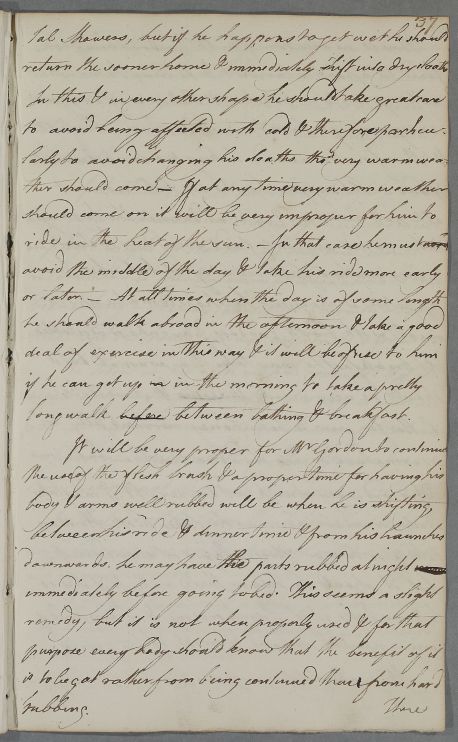 37
tal Showers, but if he happens to get wet he should
return the sooner home & immediately shift into dry cloaths
In this & in every other shape he should take great care
to avoid being affected with cold & therefore particu-
larly to avoid changing his cloaths tho' very warm wea-
ther should come — If at any time very warm weather
should come on it will be very improper for him to
ride in the heat of the sun. — In that case he must
avoid the middle of the day & take his ride more early
or later. — At all times when the day is of some length
he should walk abroad in the afternoon & take a good
deal of exercise in this way & it will be of use to him
if he can get up in in the morning to take a pretty
long walk before between bathing & breakfast.
It will be very proper for Mr Gordon to continue
the use of the flesh brush & a proper time for having his
body & arms well rubbed will be when he is shifting
between his ride & dinner time & from his haunches
downwards. he may have the parts rubbed at night
immediately before going to bed. This seems a slight
remedy, but it is not when properly used & for that
purpose every body should know that the benefit of it
is to be got rather from being continued than from hard
rubbing.
There